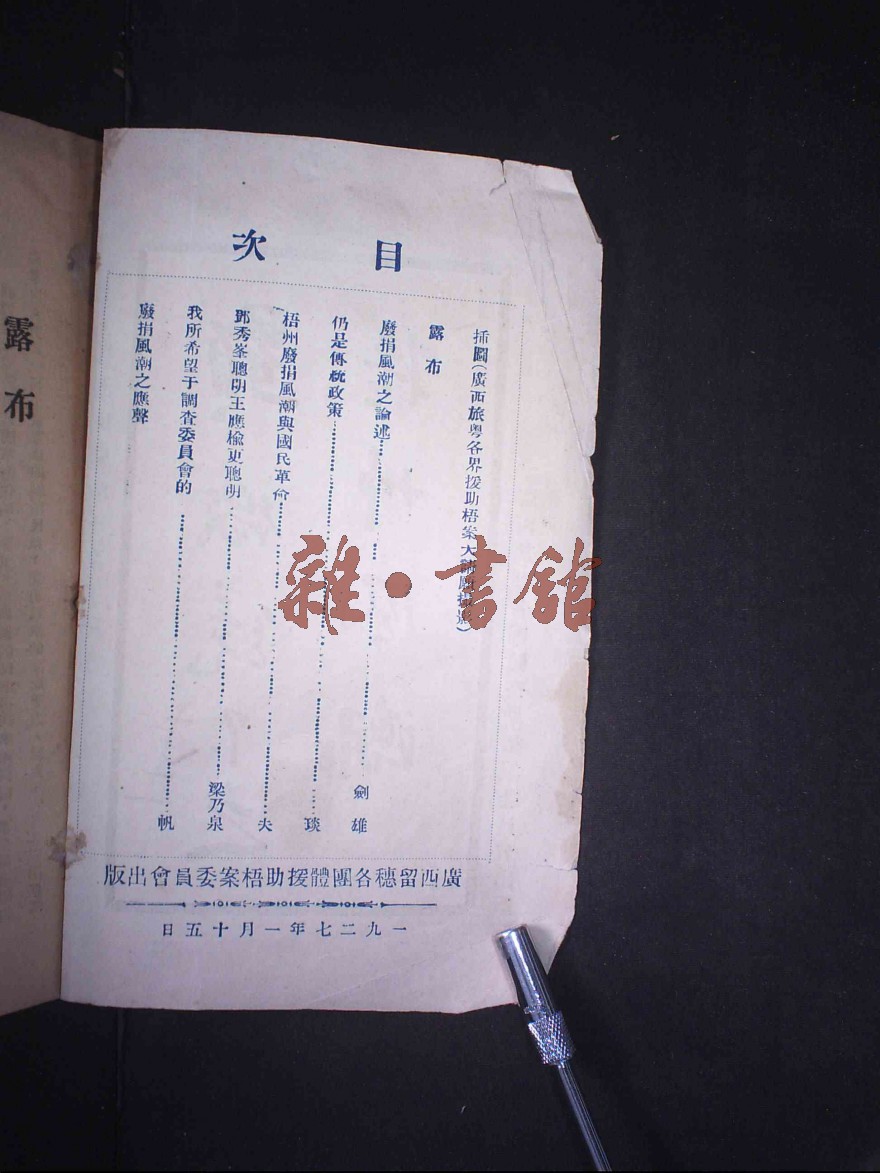 目次
插圖(廣西旅粵各界援助梧案大
露布
廢捐風潮之論述 劍雄
仍是傳統政策 琰
梧州廢捐風潮與國民革命 夫
鄧秀峯聰明王應榆更聰明 梁乃泉
我所希望于調査委員會的 帆
廢捐風潮之應聲
廣西留穗各團體援助梧案委員會出版
一九二七年一月十五日
露布
雜·書館